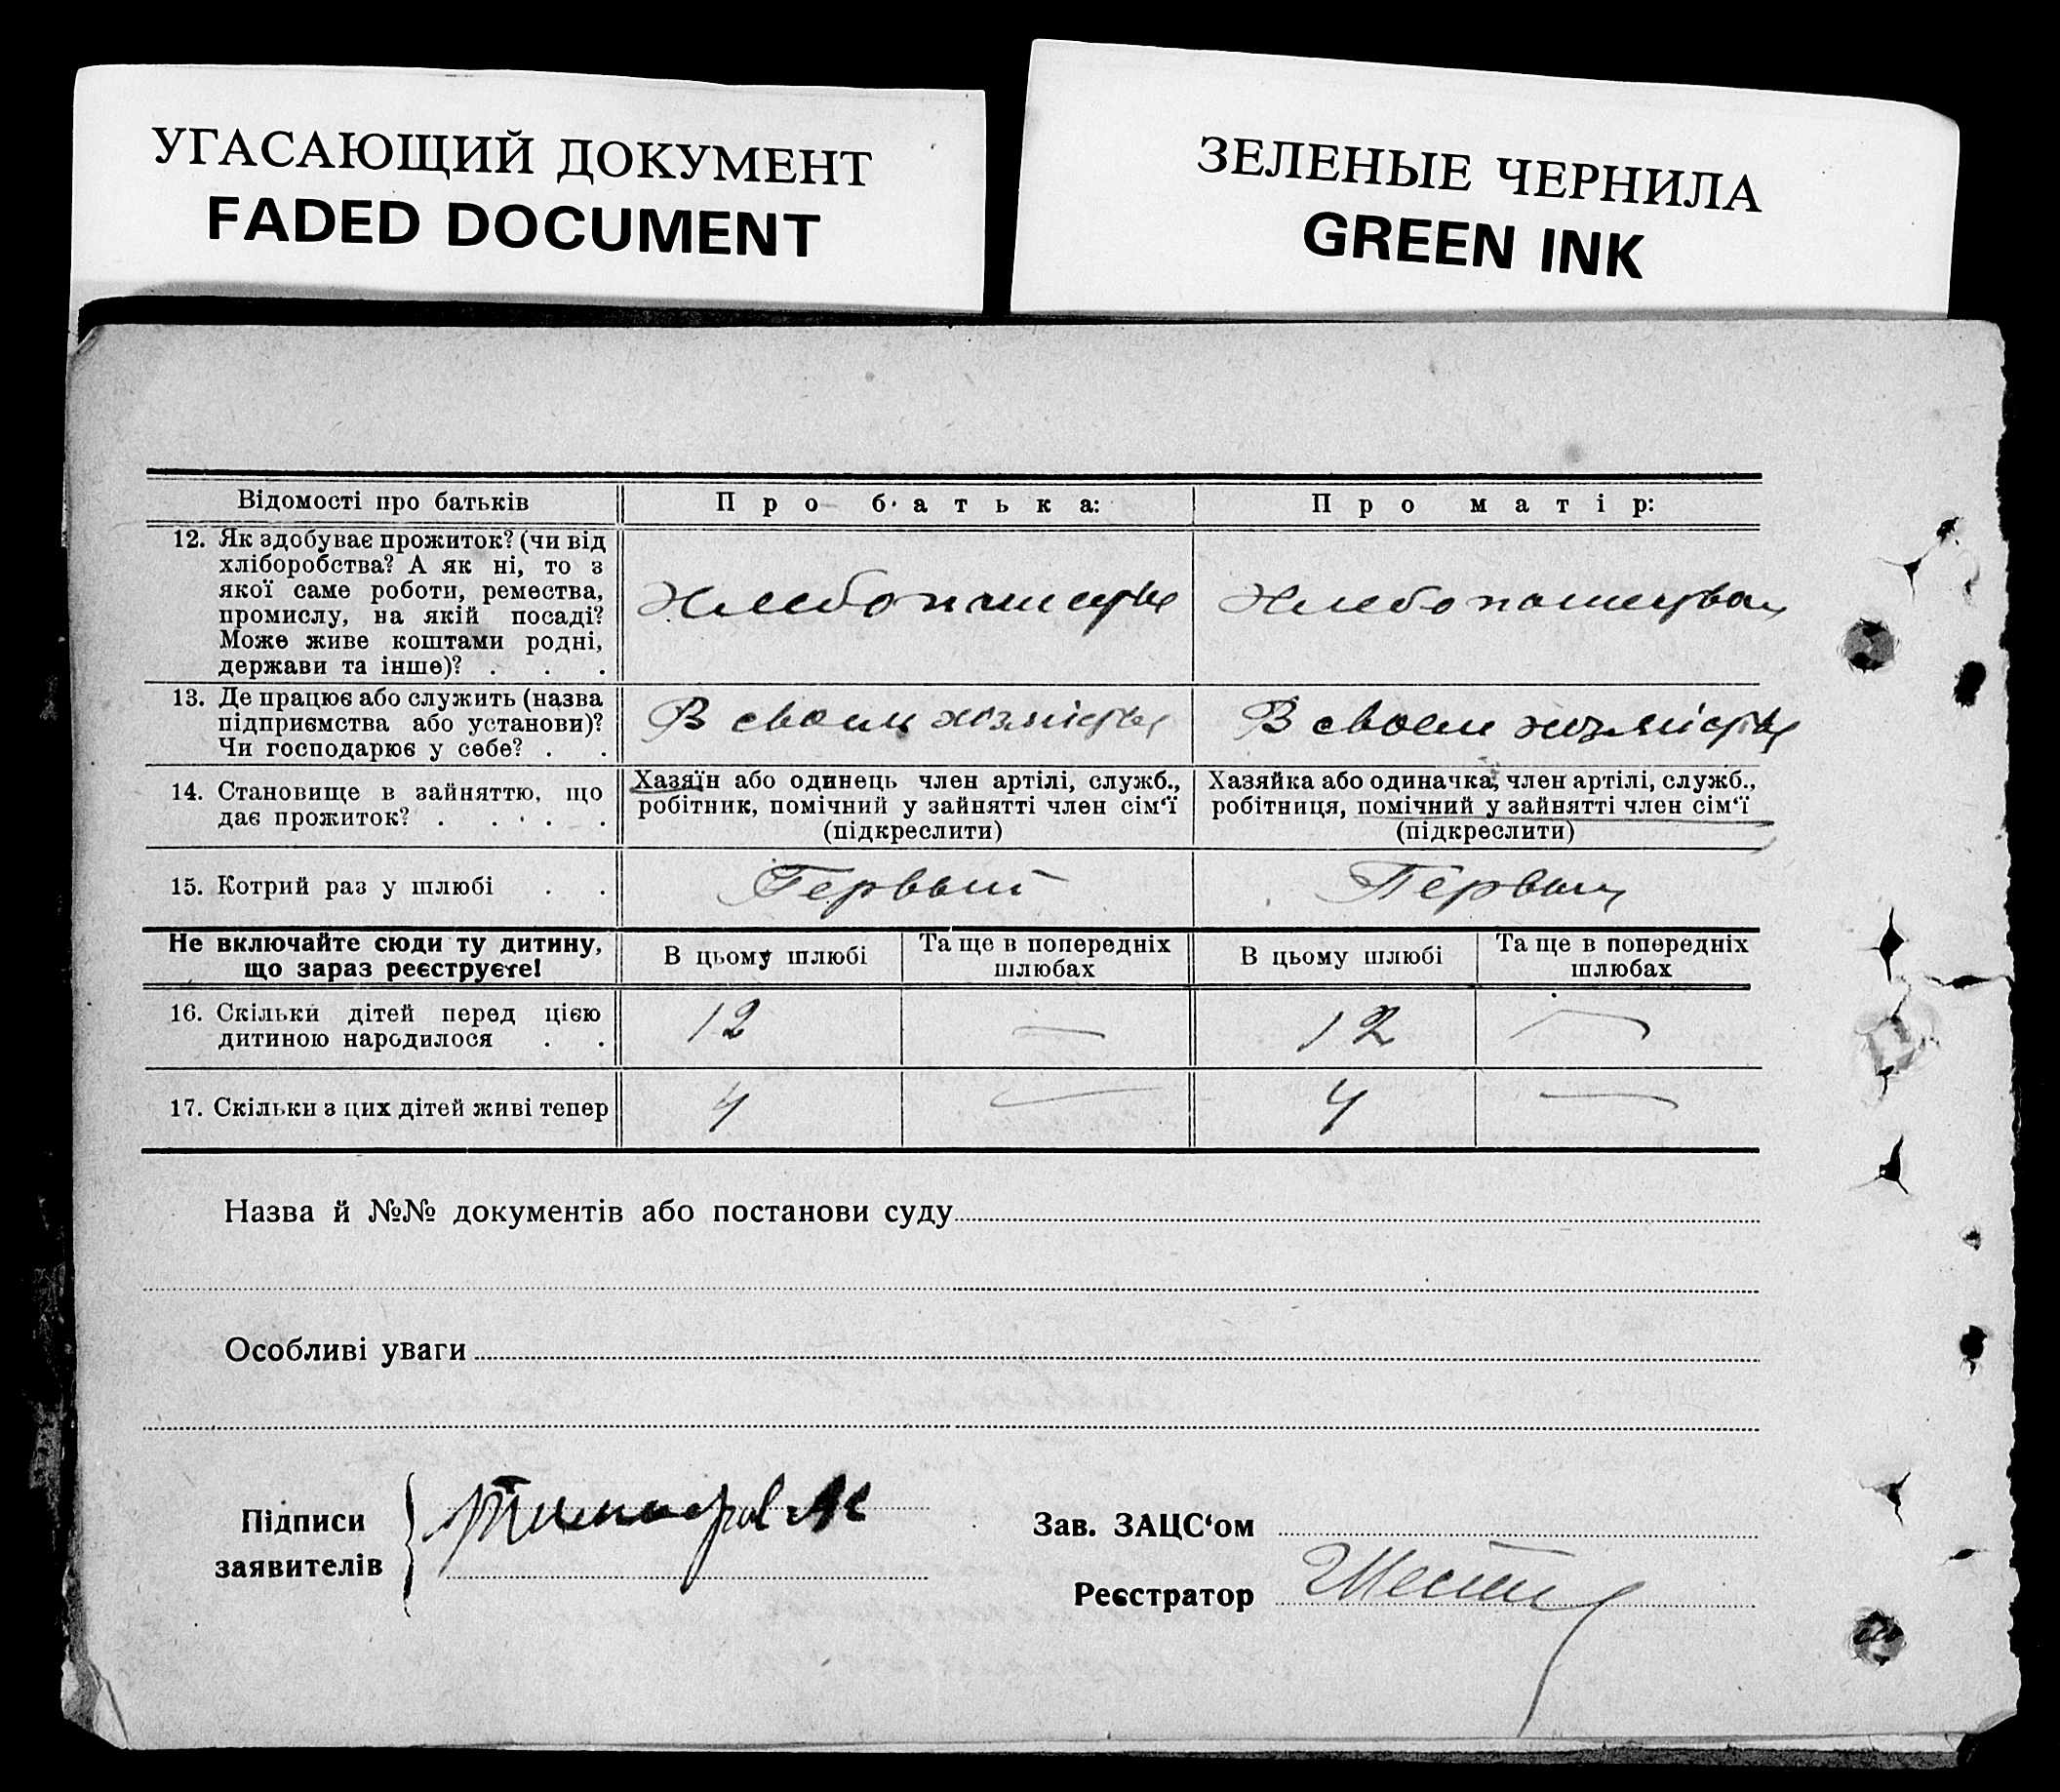 УГАСАЮЩИЙ ДОКУМЕНТ
FADED DOCUMENT
ЗЕЛЕНЫЕ ЧЕРНИЛА
GREEN INK
Відомості про батьків
Про батька:
Про матір:
12. Як здобуває прожиток? (чи від
хліборобства? А як ні, то з
якої саме роботи, ремества,
промислу, на якій посаді?
Може живе коштами родні,
держави та інше)? . . .
13. Де працює або служить (назва
підприємства або установи)?
Чи господарює у себе? . .
В своем
В своем
14. Становище в зайняттю, що
дає прожиток? . . . . .
Хазяїн або одинець член артілі, служб.,
робітник, помічний у зайнятті член сім‘ї
(підкреслити)
Хазяйка або одиначка, член артілі, служб.,
робітниця, помічний у зайнятті член сім‘ї
(підкреслити)
15. Котрий раз у шлюбі . .
Первый
Первый
Не включайте сюди ту дитину,
що зараз реєструєте!
В цьому шлюбі
Та ще в попередніх
шлюбах
В цьому шлюбі
Та ще в попередніх
шлюбах
16. Скільки дітей перед цією
дитиною народилося . .
12
—
12
—
17. Скільки з цих дітей живі тепер
4
—
4
—
Назва й №№ документів або постанови суду
Особливі уваги
Підписи
заявителів
Зав. ЗАЦС‘ом
Реєстратор